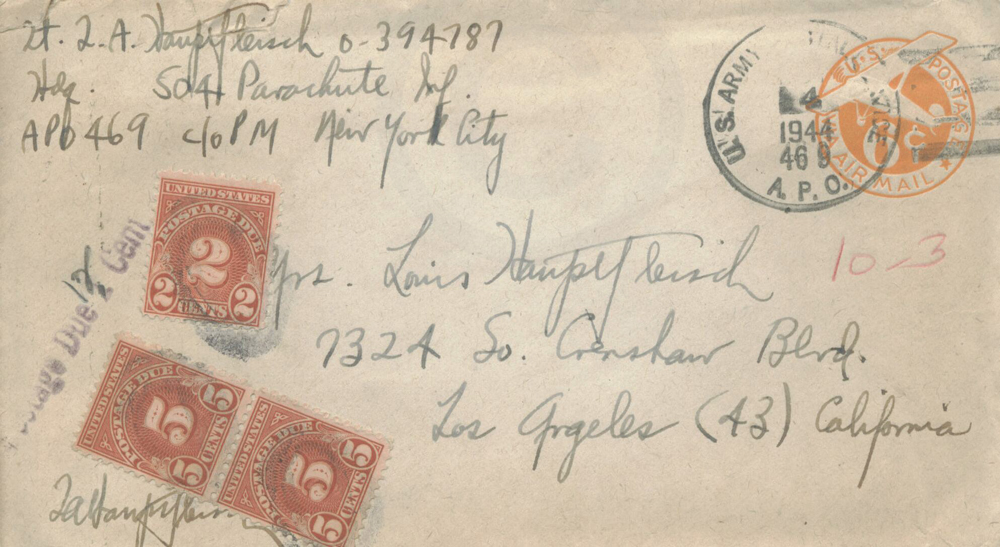 Lt. L.A. Hauptfleisch O-394787
Hdq. 504 Parachute Inf.
APO 469 c/o PM New York City
U.S. ARMY
4
1944
469
A.P.O.
U.S. POSTAGE
6c
AIR MAIL
10-3
UNITED STATES
POSTAGE DUE
2
2 CENTS 2
Postage Due 12 Cent
Mrs. Louis Hauptfleisch
7324 So. Crenshaw Blvd.
Los Angeles (43) California
UNITED STATES
POSTAGE DUE
5
5 CENTS 5
UNITED STATES
POSTAGE DUE
5
5 CENTS 5
LAHauptfleisch